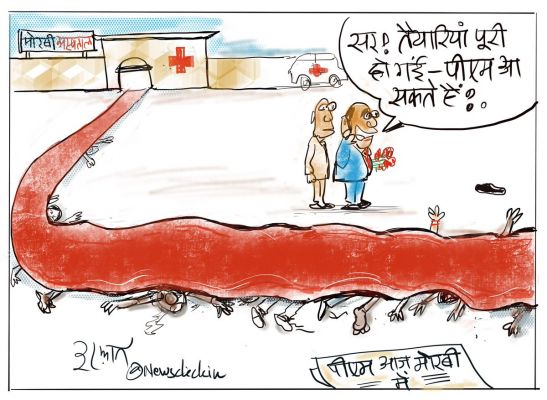 मोरबी अस्पताल
सर! तैयारियां पूरी
हो गई - पीएम आ
सकते हैं?..
इरफ़ान
@Newsdeckin
पीएम आज मोरबी
में